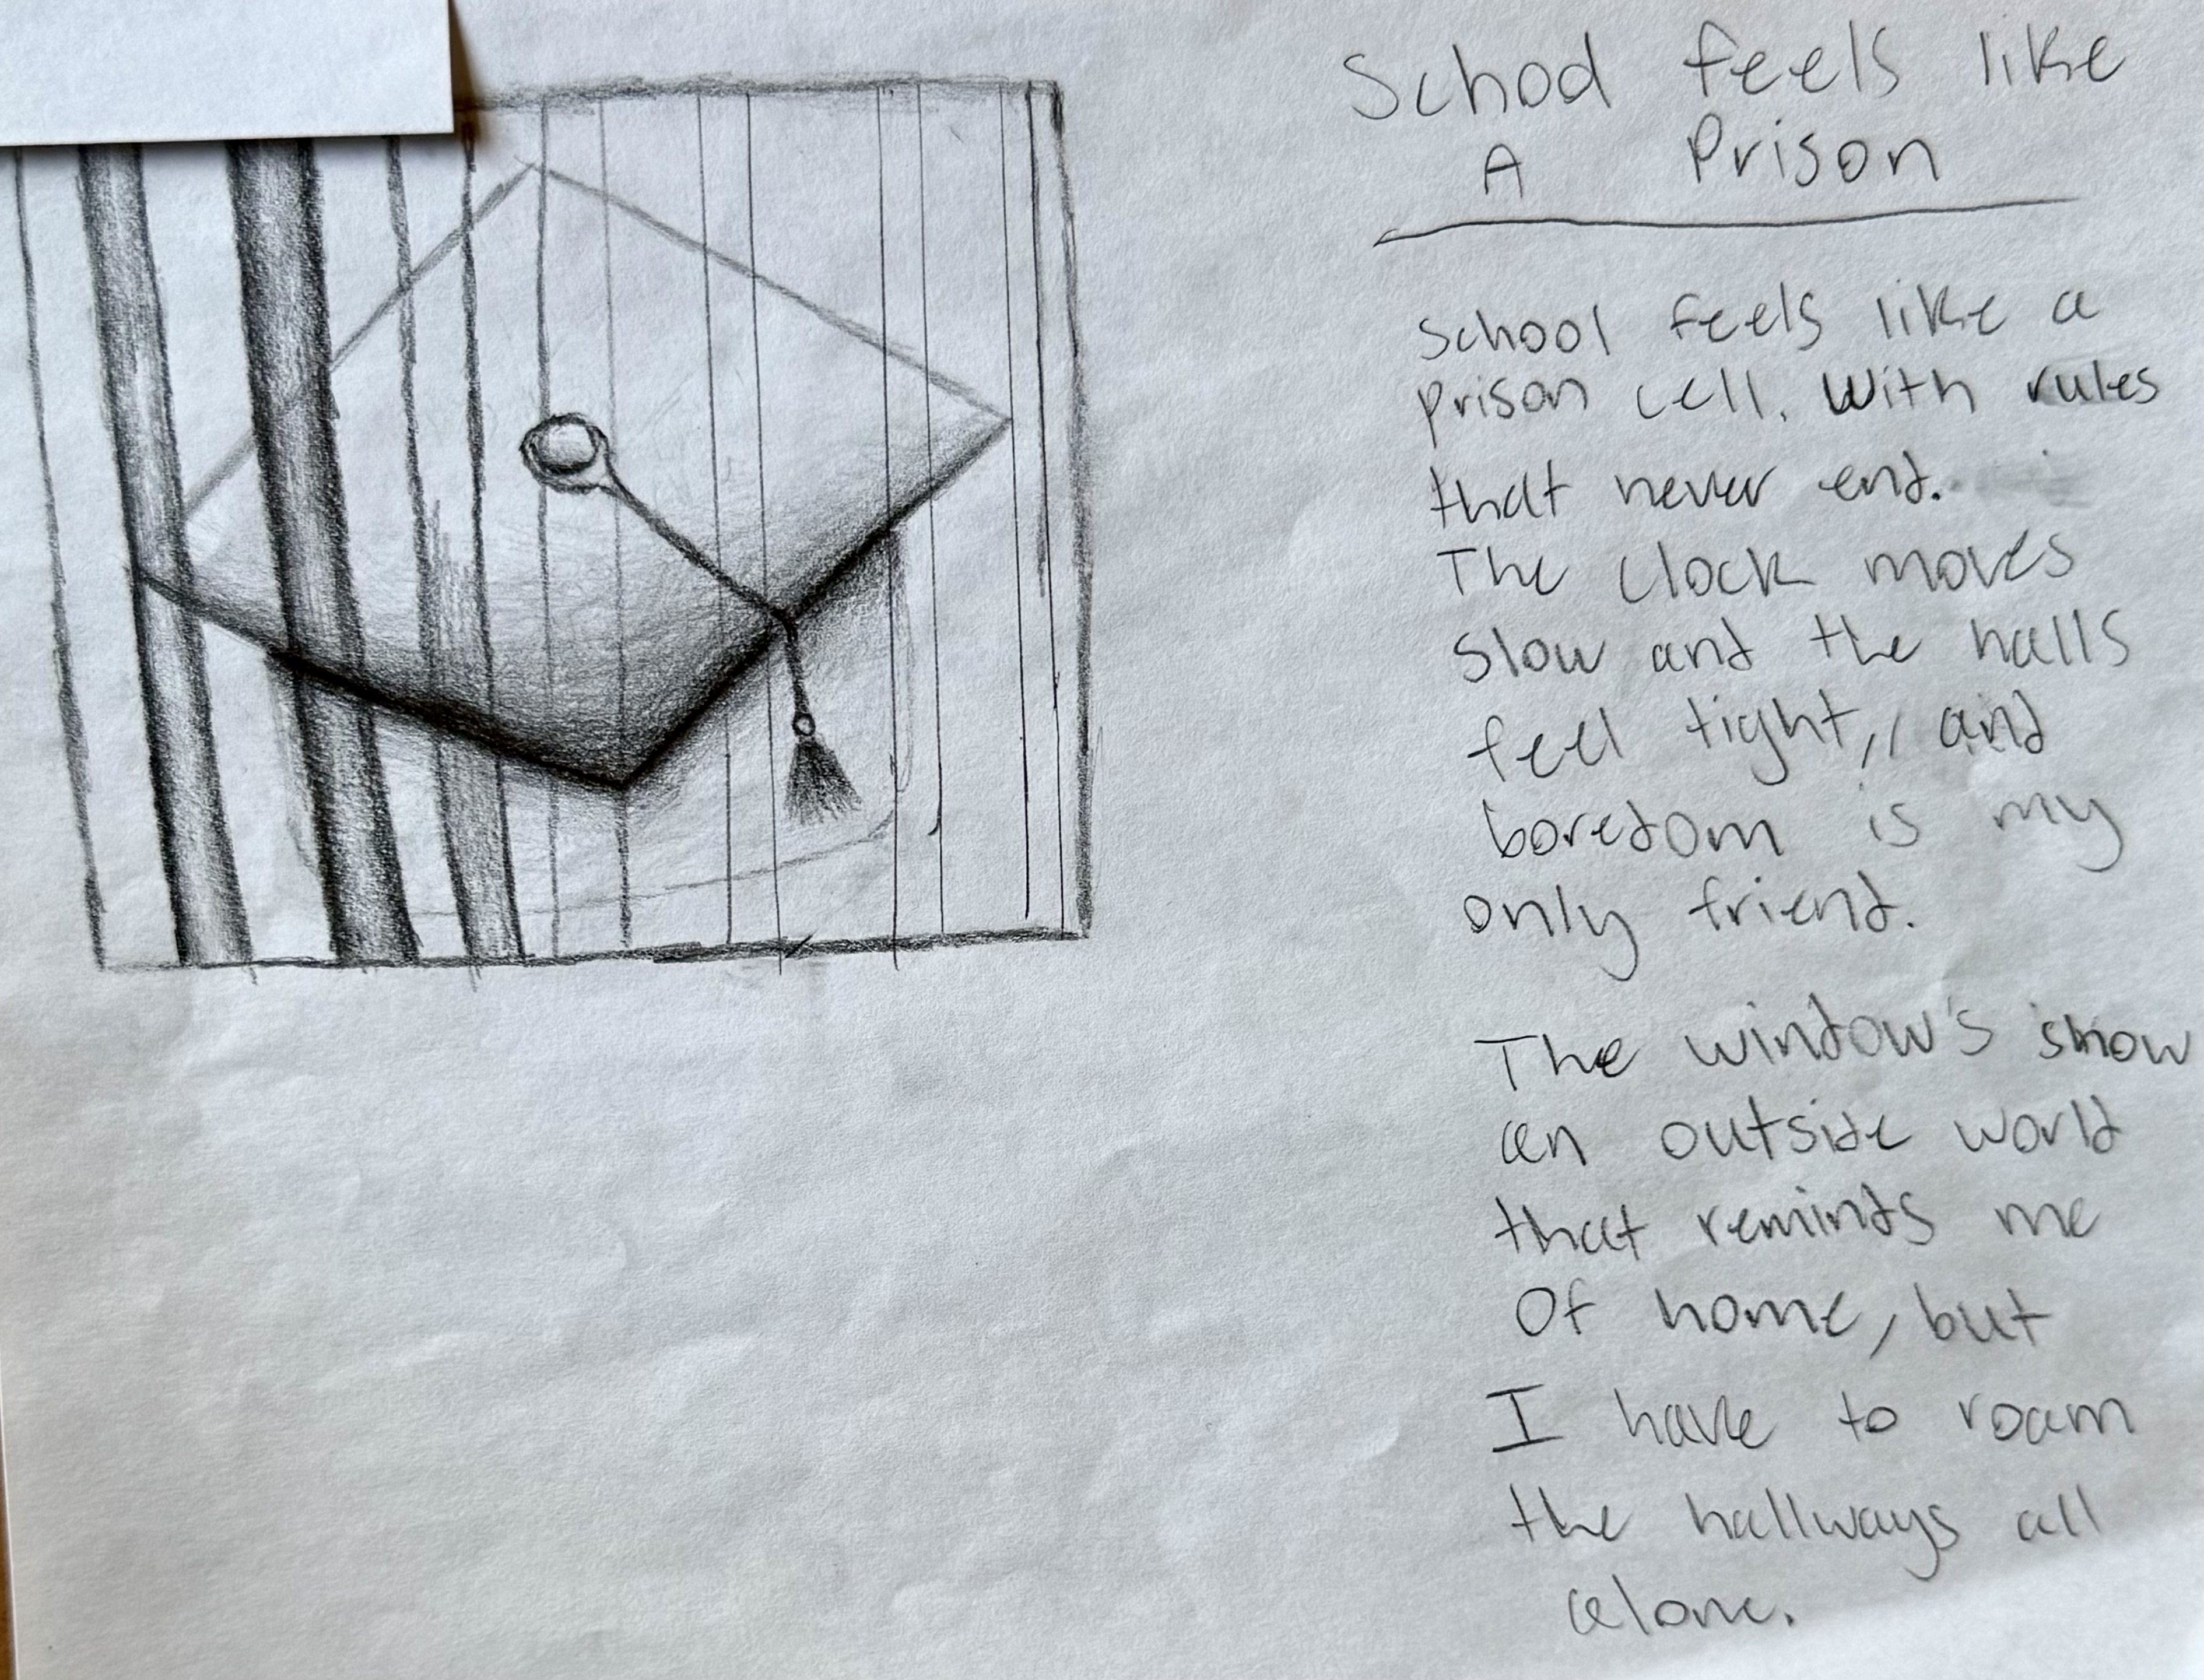 School feels like
A Prison
School feels like a
prison cell. With rules
that never end.
The clock moves
slow and the halls
feel tight,, and
boredom is my
only friend.
The window's show
an outside world
that reminds me
Of home, but
I have to roam
the hallways all
alone.